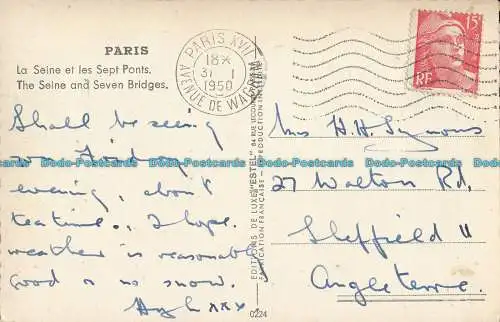 PARIS
La Seine et les Sept Ponts.
The Seine and Seven Bridges.
PARIS XVII
18H
31 1
1950
AVENUE DE WAGRAM
15F
RF
Shall be seeing
you Friday
evening, about
teatime, I hope.
weather is reasonably
good & no snow.
Hugh xxx
Mrs H.H. Symons
27 Walton Rd.
Sheffield 11
Angleterre.
EDITIONS DE LUXE "ESTEL"
FABRICATION FRANÇAISE - REPRODUCTION INTERDITE
0224
Dodo-Postcards Dodo-Postcards Dodo-Postcards Dodo-Postcards Dodo-Postcards